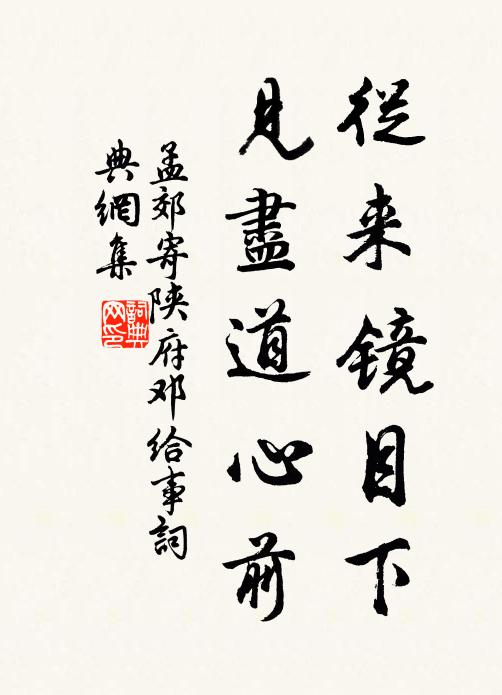 從来镜目下
見盡道心前
孟郊寄陕府邓给事詞
典網集
詞典網印